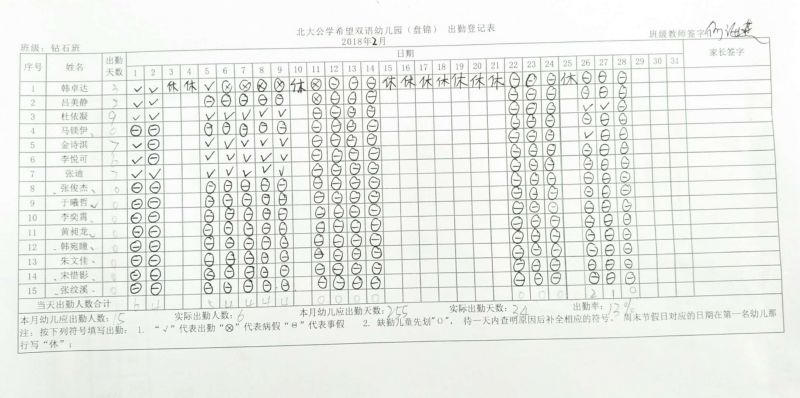 北大公学希望双语幼儿园（盘锦） 出勤登记表
2018年2月
班级：钻石班 班级教师签字
序号 姓名 出勤天数 日期 家长签字
1 2 3 4 5 6 7 8 9 10 11 12 13 14 15 16 17 18 19 20 21 22 23 24 25 26 27 28 29 30 31
1 韩卓达 3 ✓ ✓ 休 休 ✓ ⊗ ⊗ ⊗ ⊗ 休 ⊗ ⊖ ⊖ ⊖ 休 休 休 休 休 休 休 ⊖ ⊖ ⊖ 休 ⊖ ⊖ ⊖
2 吕美静 ✓ ✓ ⊖ ⊖ ⊖ ⊖ ⊖ ⊖ ⊖ ⊖ ⊖ ⊖ ⊖ ⊖
3 杜依凝 9 ✓ ✓ ✓ ✓ ✓ ✓ ✓ ⊖ ⊖ ⊖ ⊖ ⊖ ⊖ ⊖ ✓ ✓ ⊖
4 马镁伊 0 ⊖ ⊖ ⊖ ⊖ ⊖ ⊖ ⊖ ⊖ ⊖ ⊖ ⊖ ⊖ ⊖ ⊖
5 金诗淇 7 ✓ ⊖ ✓ ✓ ✓ ✓ ✓ ⊖ ⊖ ⊖ ⊖ ⊖ ⊖ ⊖ ✓ ⊖ ⊖
6 李悦可 ✓ ⊖ ✓ ✓ ✓ ✓ ✓ ⊖ ⊖ ⊖ ⊖ ⊖ ⊖ ⊖ ⊖ ⊖ ⊖
7 张迪 7 ✓ ✓ ✓ ✓ ✓ ✓ ✓ ⊖ ⊖ ⊖ ⊖ ⊖ ⊖ ⊖ ⊖ ⊖ ⊖
8 张俊杰 0 ⊖ ⊖ ⊖ ⊖ ⊖ ⊖ ⊖ ⊖ ⊖ ⊖ ⊖ ⊖ ⊖ ⊖ ⊖ ⊖ ⊖
9 于曦哲 0 ⊖ ⊖ ⊖ ⊖ ⊖ ⊖ ⊖ ⊖ ⊖ ⊖ ⊖ ⊖ ⊖ ⊖ ⊖ ⊖ ⊖
10 李奕霄 0 ⊖ ⊖ ⊖ ⊖ ⊖ ⊖ ⊖ ⊖ ⊖ ⊖ ⊖ ⊖ ⊖ ⊖ ⊖ ⊖ ⊖
11 黄昶龙 0 ⊖ ⊖ ⊖ ⊖ ⊖ ⊖ ⊖ ⊖ ⊖ ⊖ ⊖ ⊖ ⊖ ⊖ ⊖ ⊖ ⊖
12 韩宛瞳 0 ⊖ ⊖ ⊖ ⊖ ⊖ ⊖ ⊖ ⊖ ⊖ ⊖ ⊖ ⊖ ⊖ ⊖ ⊖ ⊖ ⊖
13 朱文佳 0 ⊖ ⊖ ⊖ ⊖ ⊖ ⊖ ⊖ ⊖ ⊖ ⊖ ⊖ ⊖ ⊖ ⊖ ⊖ ⊖ ⊖
14 宋惜影 0 ⊖ ⊖ ⊖ ⊖ ⊖ ⊖ ⊖ ⊖ ⊖ ⊖ ⊖ ⊖ ⊖ ⊖ ⊖ ⊖ ⊖
15 张纹溪 0 ⊖ ⊖ ⊖ ⊖ ⊖ ⊖ ⊖ ⊖ ⊖ ⊖ ⊖ ⊖ ⊖ ⊖ ⊖ ⊖ ⊖
当天出勤人数合计 6 4 5 4 4 4 4 0 0 0 0 0 0 0 2 1 0
本月幼儿应出勤人数：15 实际出勤人数：6 本月幼儿应出勤天数：255 实际出勤天数：34 出勤率：13%
注：按下列符号填写出勤： 1. “✓”代表出勤“⊗”代表病假“⊖”代表事假 2. 缺勤儿童先划“○”， 待一天内查明原因后补全相应的符号。 周末节假日对应的日期在第一名幼儿那
行写“休”；